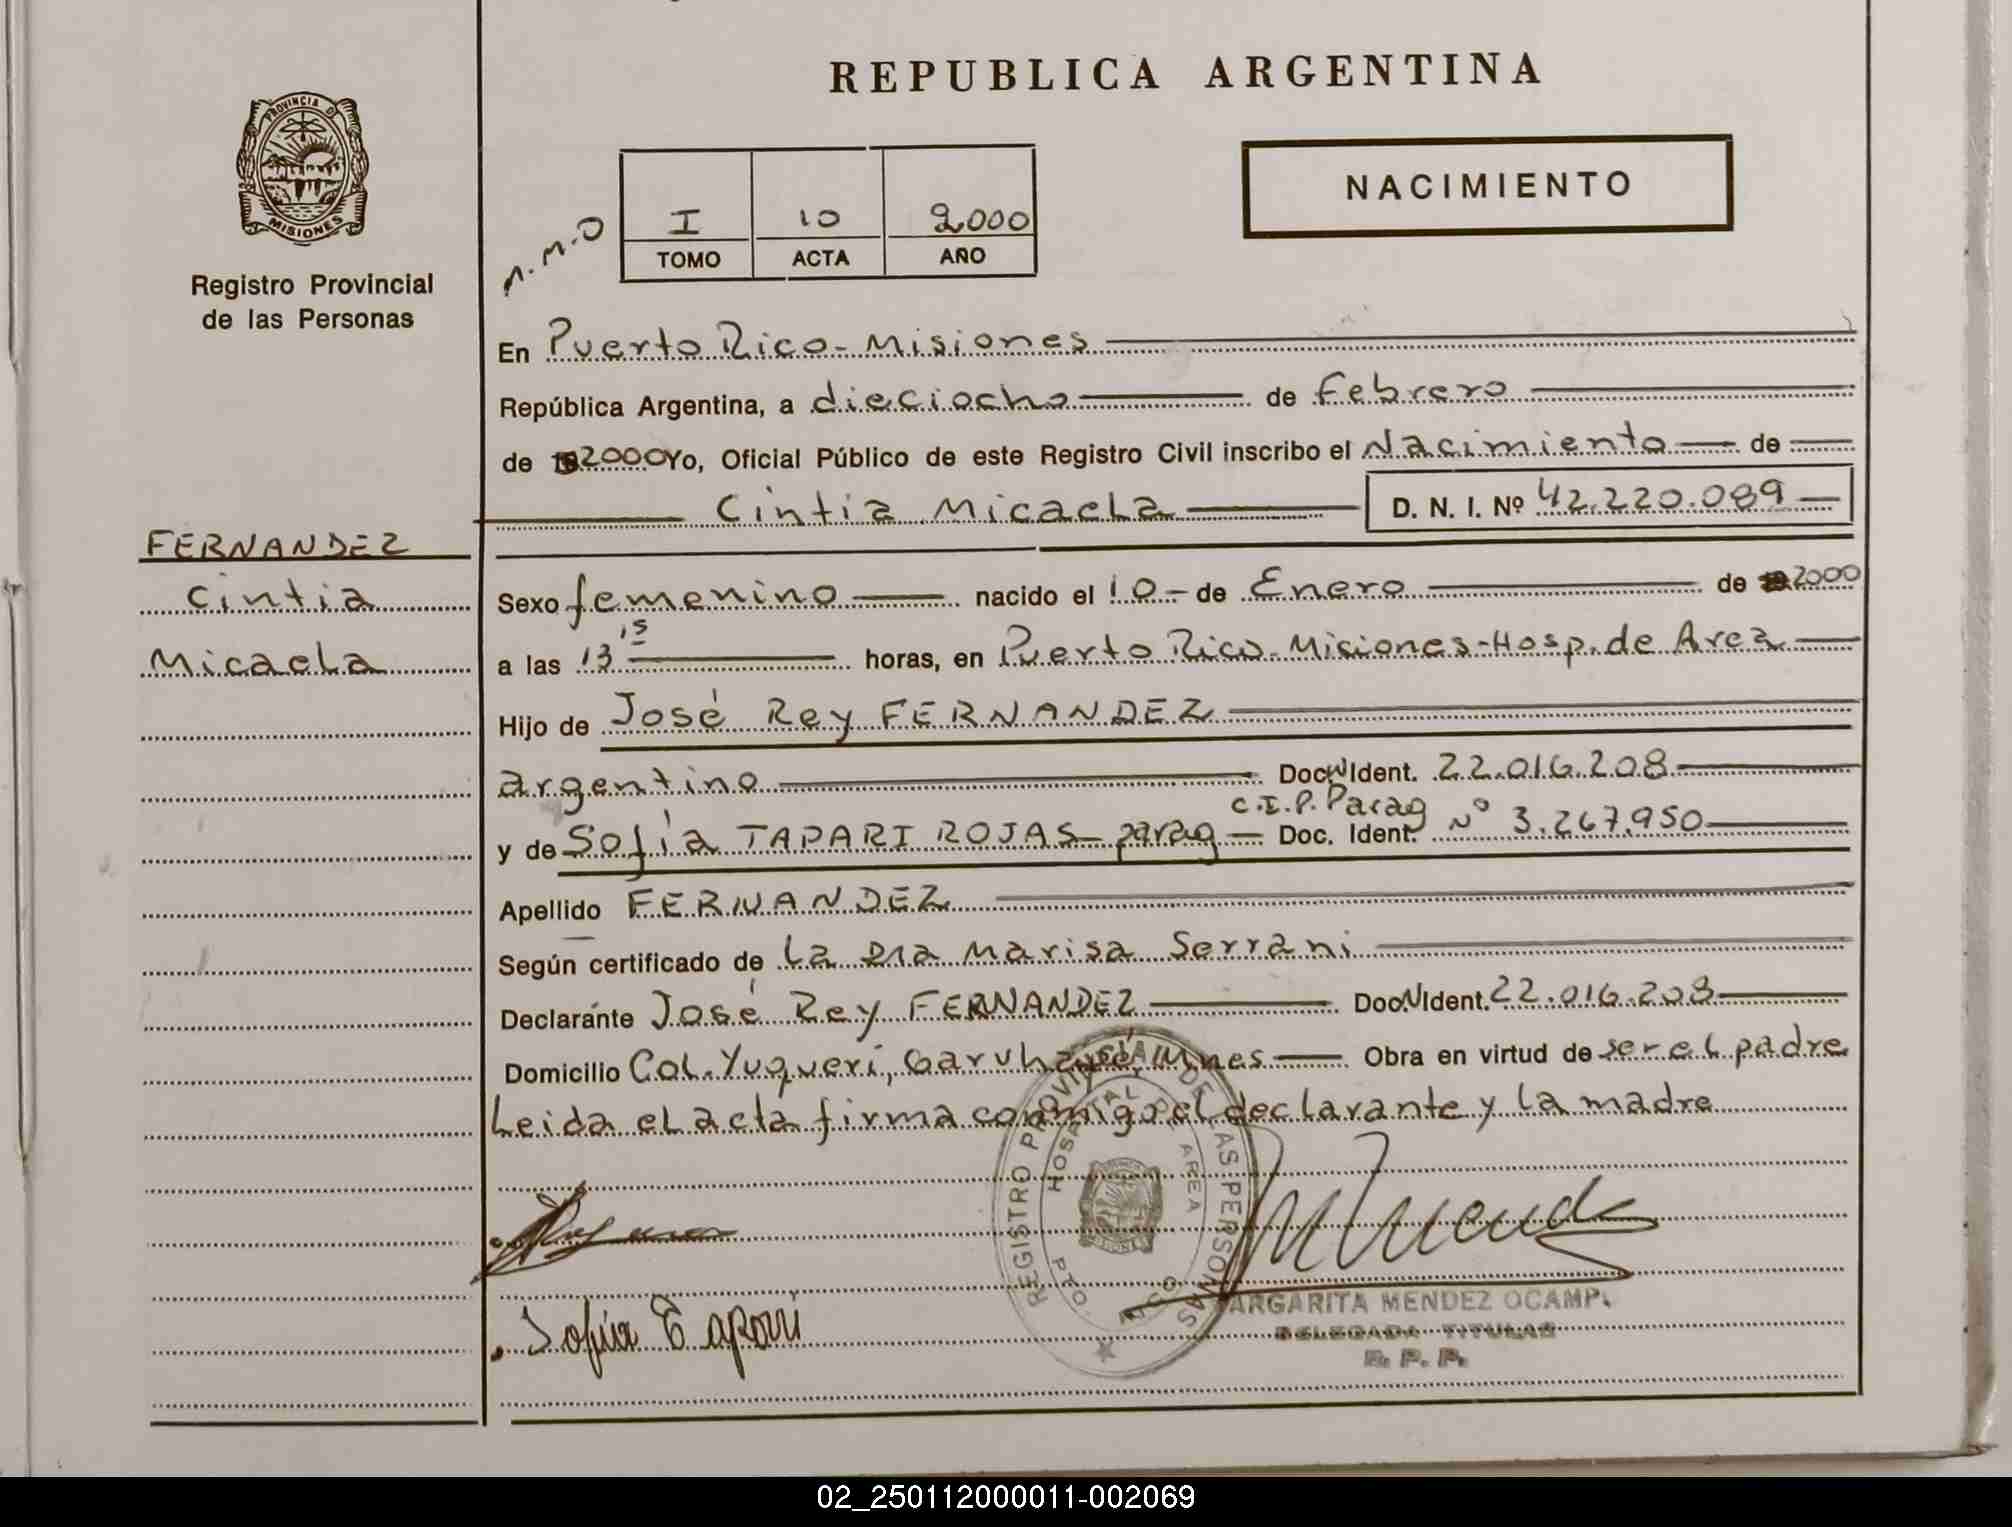 REPUBLICA ARGENTINA
PROVINCIA D
MISIONES
NACIMIENTO
M.M.O
I 10 2000
TOMO ACTA AÑO
Registro Provincial
de las Personas
En Puerto Rico-Misiones
República Argentina, a dieciocho de Febrero
de 192000 Yo, Oficial Público de este Registro Civil inscribo el Nacimiento de
Cintia Micaela D. N. I. Nº 42.220.089
FERNANDEZ
Cintia
Micaela
Sexo femenino nacido el 10- de Enero de 192000
a las 13 15 horas, en Puerto Rico-Misiones-Hosp. de Area
Hijo de José Rey FERNANDEZ
argentino Doc.N.Ident. 22.016.208
C.I.P. Parag
y de Sofía TAPARI ROJAS-parag- Doc. Ident. Nº 3.267.950
Apellido FERNANDEZ
Según certificado de la DRA Marisa Serrani
Declarante José Rey FERNANDEZ Doc.N.Ident. 22.016.208
Domicilio Col. Yuquerí, Garuhapé, Mnes Obra en virtud de ser el padre
Leida el acta firma conmigo el declarante y la madre
REGISTRO PROVINCIAL DE LAS PERSONAS
HOSPITAL DE AREA
PTO. RICO
Sofía Tapari
MARGARITA MENDEZ OCAMPO
DELEGADA TITULAR
R. P. P.
02_250112000011-002069